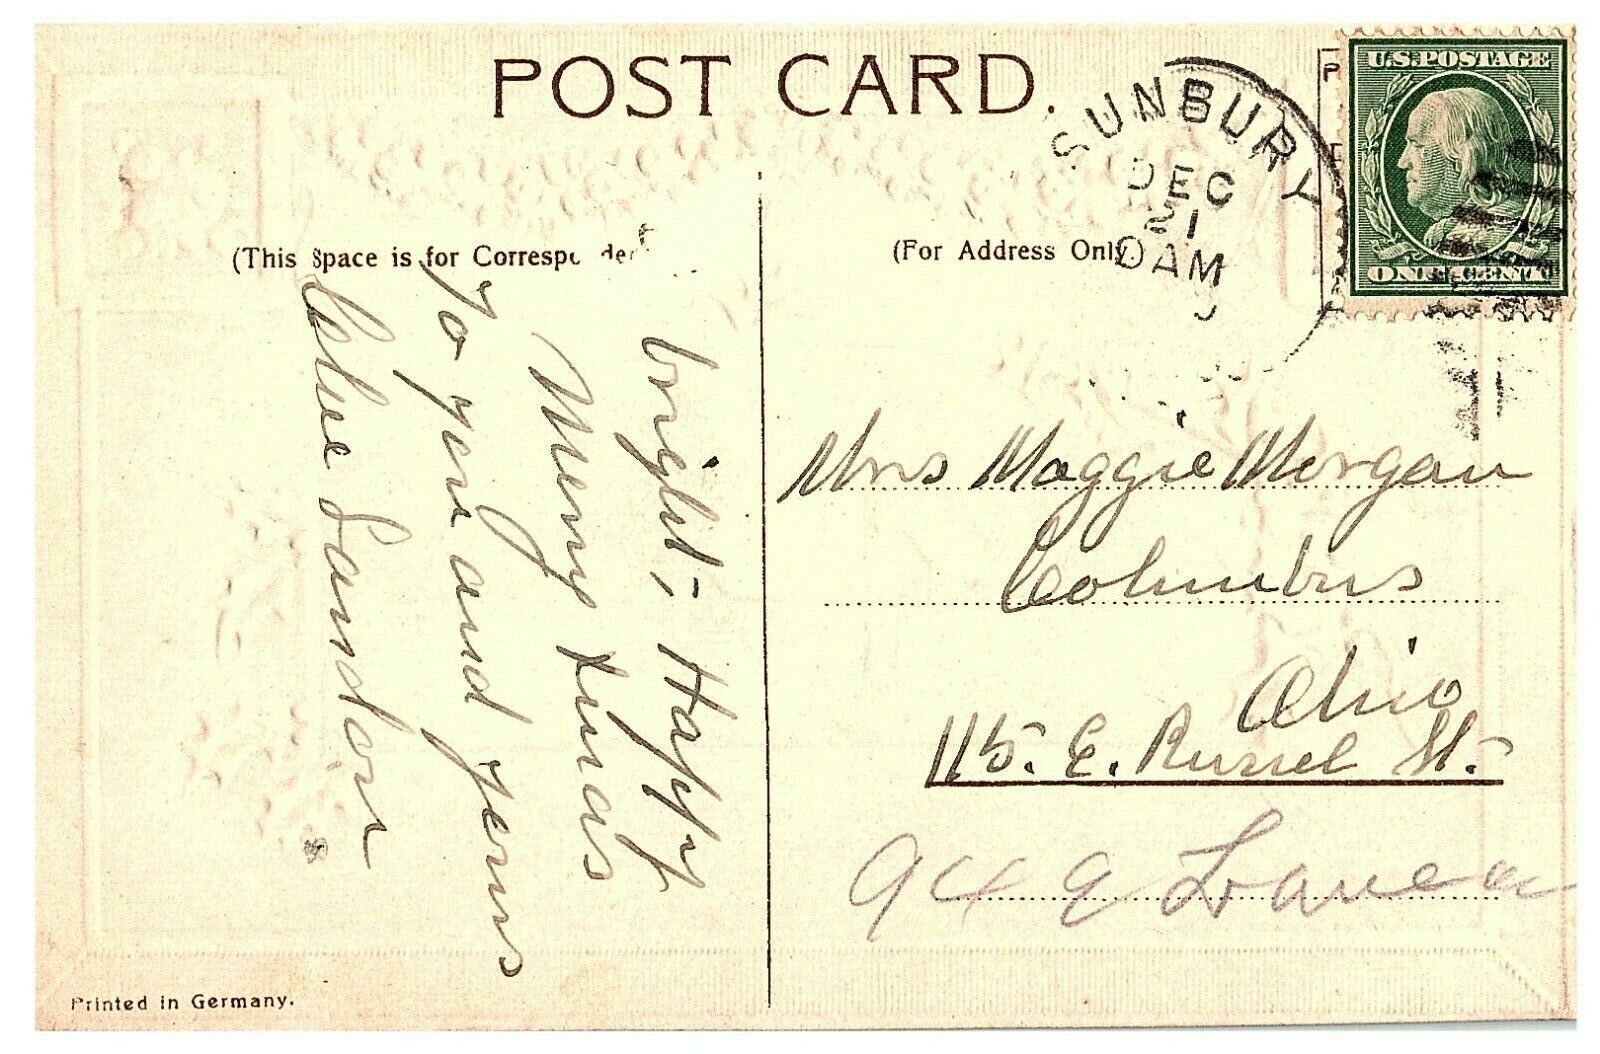 POST CARD.
SUNBURY
DEC
21
AM
U.S.POSTAGE
ONE CENT
(This Space is for
(For Address Only.
bright, Happy
Merry Xmas
To you and yours
Landon
Mrs Maggie Morgan
Columbus
Ohio
115. E. Russel St.
94
Printed in Germany.